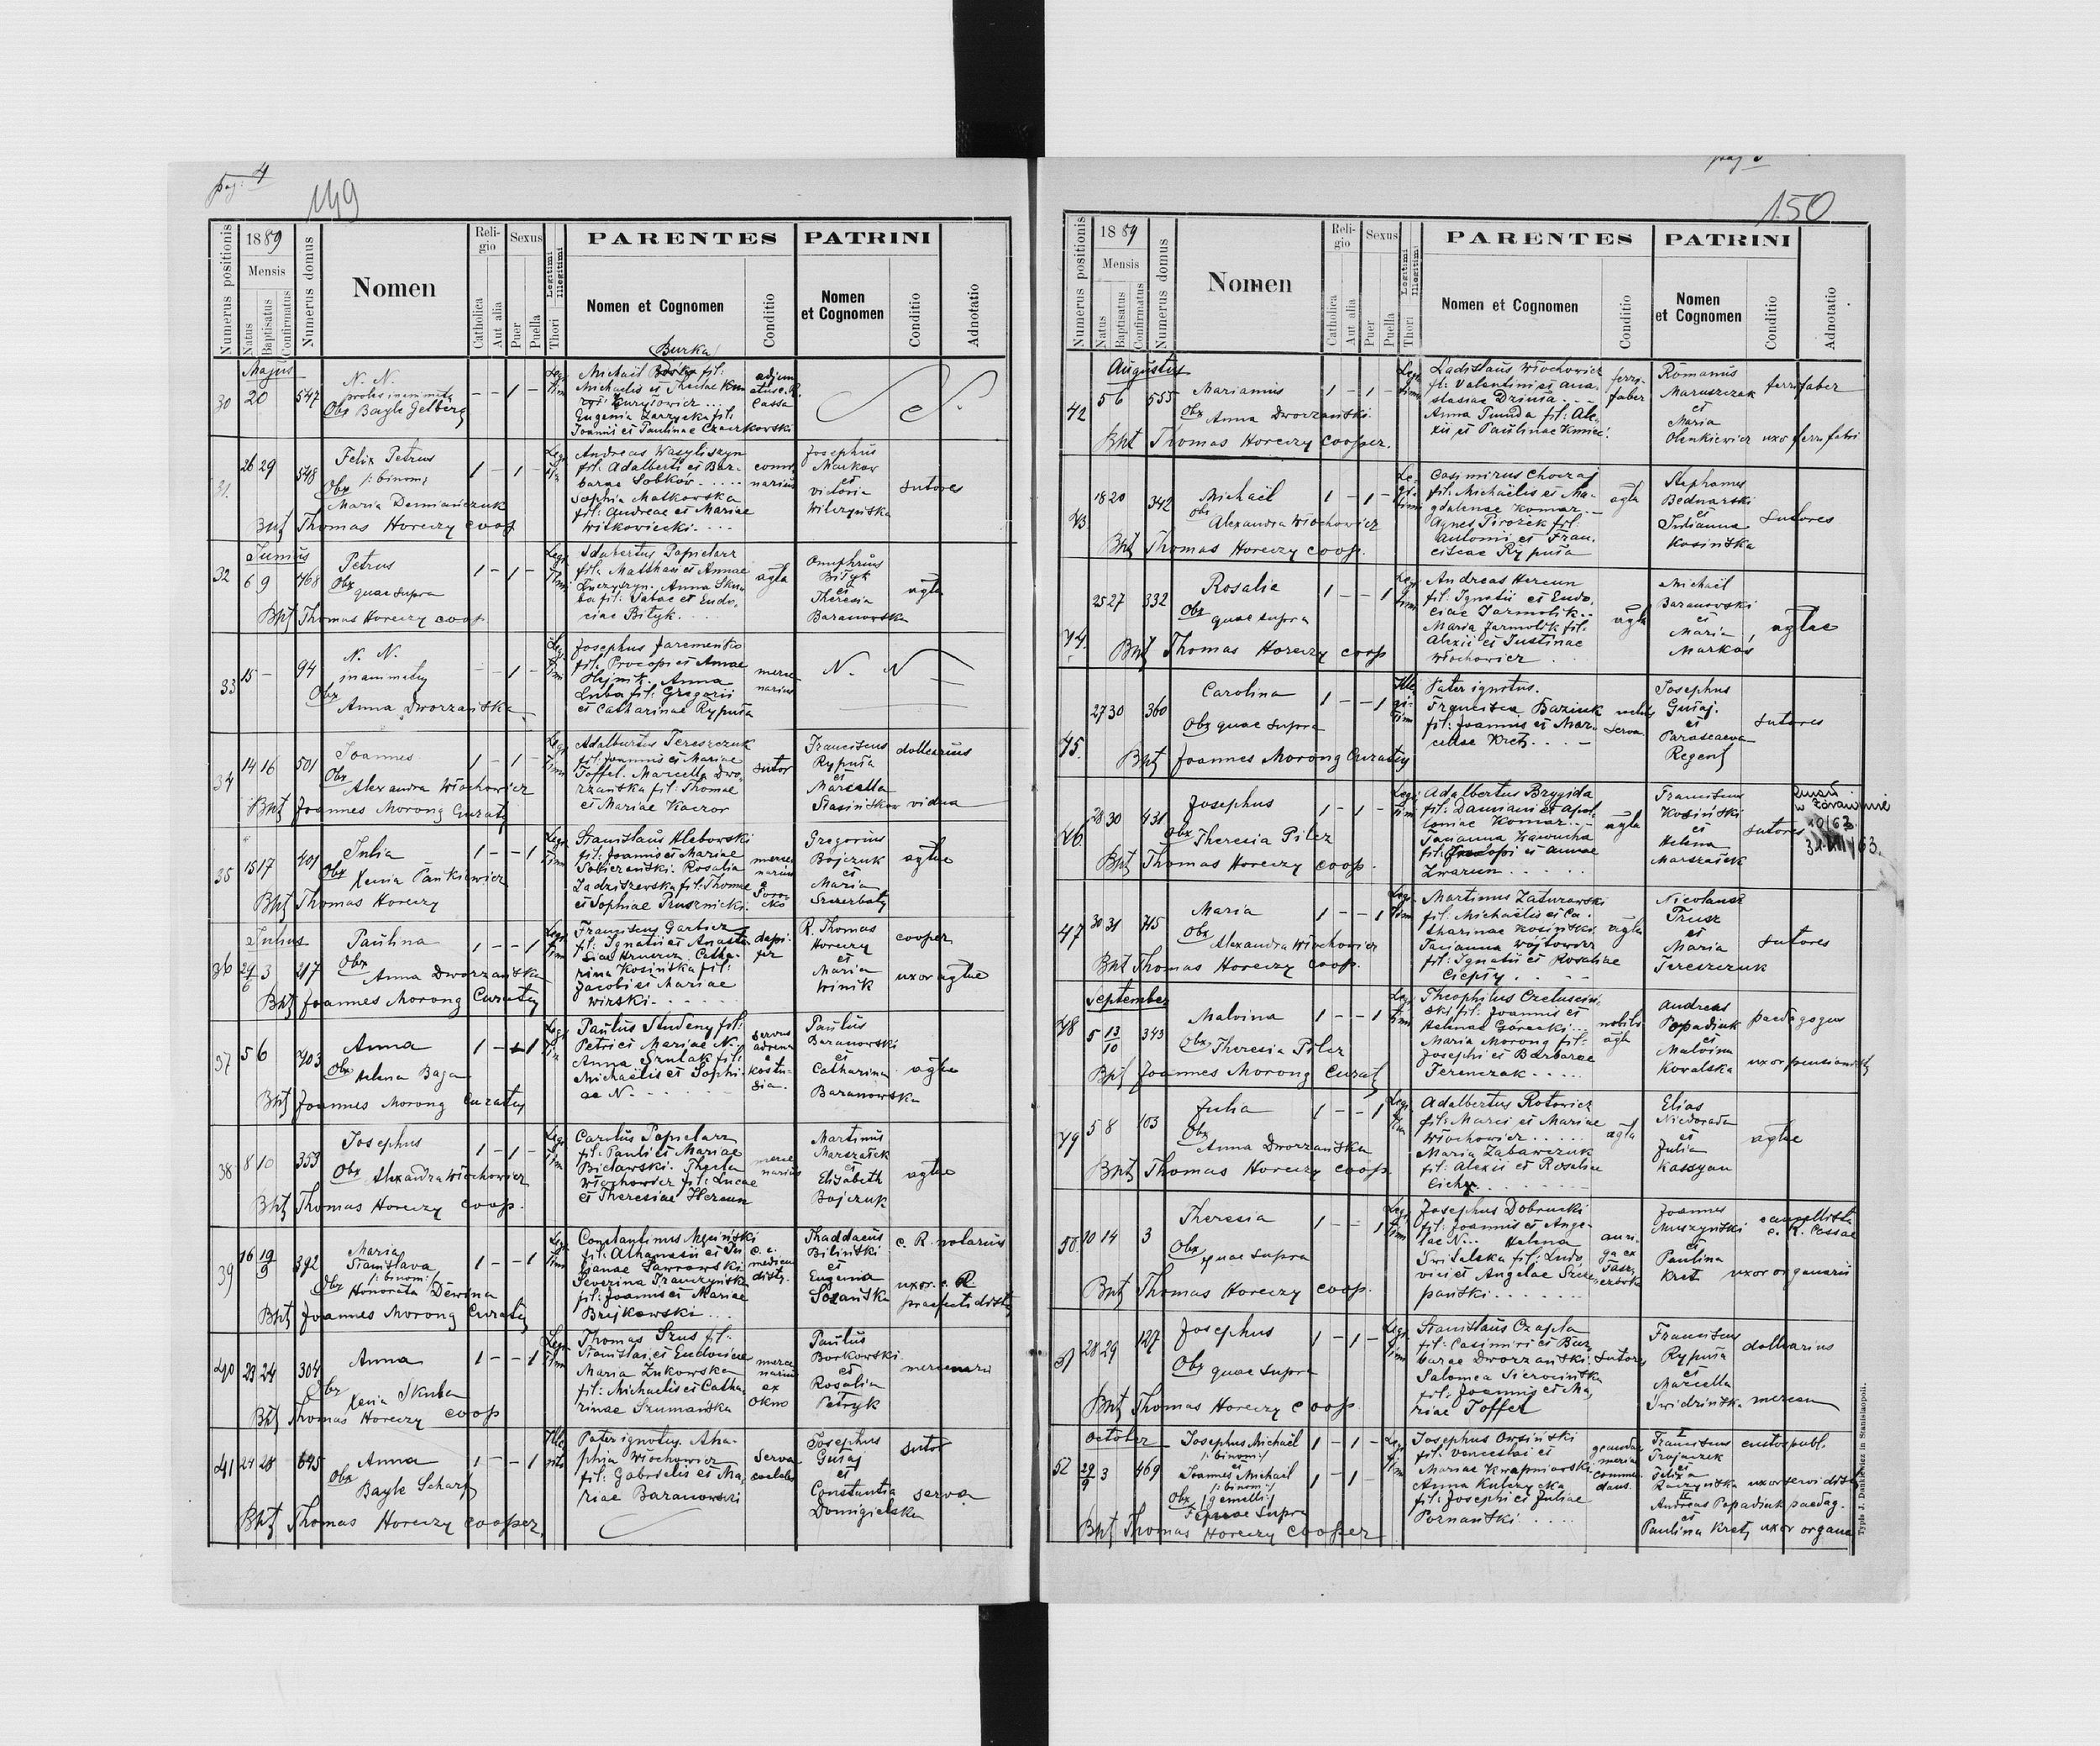 pag: 4
149
Numerus positionis
1889
Mensis
Natus
Baptisatus
Confirmatus
Numerus domus
Nomen
Religio
Catholica
Aut alia
Sexus
Puer
Puella
Legitimi
Illegitimi
Thori
PARENTES
Nomen et Cognomen
Conditio
PATRINI
Nomen et Cognomen
Conditio
Adnotatio
Majus
30 20 547 N. N.
Obx Bayle Gelberg
Burka
Michael fil:
Michaelis et Theclae
Eugenia Zarzycka fil.
Joannis et Paulinae Czaczkowski
Cassa
31. 26 29 548 Felix Petrus
/: binom:
Obx
Maria Demiańczuk
Bpt Thomas Horeczy coop
Andreas Wasyliszyn
fil: Adalberti et Bar-
barae Sobkov
Sophia Malkowska
fil: Andreae et Mariae
Witkoviecki
Josephus
Markow
et
Victoria
Wilczyńska
sutores
Junius
32 6 9 468 Petrus
Obx quae supra
Bpt Thomas Horeczy coop
Adalbertus Papielarz
fil: Matthaei et Annae
Anna Sku-
ba fil: Sabae et Eudo-
ciae Bityk
agla
Onuphrius
Bityk
et
Theresia
Baranowska
agla
33 15 - 94 N. N.
Obx
Anna Dworzańska
Josephus Jaremenko
fil: Procopi et Annae
Olejnik. Anna
Luba fil: Gregorii
et Catharinae Rypuła
merce-
narius
N. N
34 14 16 501 Joannes
Obx
Alexandra Włochowicz
Bpt Joannes Morong Curat
Adalbertus Tereszczuk
fil. Joannis et Mariae
Toffel. Marcella Dwo-
rzańska fil: Thomae
et Mariae Kaczor
sutor
Franciscus
Rypuła
et
Marcella
Stasińskow
doliarius
vidua
35 15 17 401 Julia
Obx Xenia Pańkiewicz
Bpt Thomas Horeczy
Stanislaus Hlebowski
fil: Joannis et Mariae
Sobierański. Rosalia
Zadziszewska fil: Thomae
et Sophiae Prusznicki
Gregorius
Bojczuk
et
Maria
Szczerbaty
aglae
Julius
36 29/6 3 217 Paulina
Obx
Anna Dworzańska
Bpt Joannes Morong Curaty
Franciscus Garbicz
fil: Ignatii et Anasta-
siae Hruncza. Catha-
rina Kosińska fil:
Jacobi et Mariae
Wirski
dapi-
fer
R. Thomas
Horeczy
et
Maria
Winik
cooper
uxor aglae
37 5 6 403 Anna
Obx
Helena Baga
Bpt Joannes Morong Curatus
Paulus Studeny fil:
Petri et Mariae N.
Anna Szulak fil:
Michaëlis et Sophi-
ae N.
servus
Paulus
Baranowski
et
Catharina
Baranowska
aglae
38 8 10 353 Josephus
Obx Alexandra Włochowicz
Bpt Thomas Horeczy coop.
Carolus Papielarz
fil: Pauli et Mariae
Bielawski. Thecla
Włochowicz fil: Lucae
et Theresiae Hercun
merce-
narius
Martinus
Marszałek
et
Elisabeth
Bojczuk
aglae
39 16 19/9 392 Maria
Stanislava
/: binom:/
Obx Honorata Dewina
Bpt Joannes Morong Curaty
Constantinus Męciński
fil: Athanasii et Ju-
lianae Pawrowski
Severina Franczyńska
fil: Joannis et Mariae
Brykowski
Thaddaeus
Biliński
et
Eugenia
Sozańska
c. R. notarius
uxor c. R
praefecti distr
40 23 24 304 Anna
Obx
Xenia Skuba
Bpt Thomas Horeczy coop
Thomas Szus fil:
Stanislai et Eudociae
Maria Żukowska
fil: Michaelis et Catha-
rinae Szumańska
merce-
narius
ex
Okno
Paulus
Borkowski
et
Rosalia
Petryk
mercenarii
41 24 28 645 Anna
Obx
Bayle Scharf
Bpt Thomas Horeczy cooper.
Pater ignotus. Aha-
phia Włochowicz
fil: Gabrielis et Ma-
riae Baranowski
Serva
Josephus
Gułaj
et
Constantia
Domigielska
sutor
serva
150
Numerus positionis
1889
Mensis
Natus
Baptisatus
Confirmatus
Numerus domus
Nomen
Religio
Catholica
Aut alia
Sexus
Puer
Puella
Legitimi
Illegitimi
Thori
PARENTES
Nomen et Cognomen
Conditio
PATRINI
Nomen et Cognomen
Conditio
Adnotatio
Augustus
42 5 6 555 Marianus
Obx Anna Dworzańska
Bpt Thomas Horeczy cooper.
Ladislaus Włochowicz
fil: Valentini et Ana-
stasiae Dzinia
Anna Tunda fil: Ale-
xii et Paulinae Kmieć
ferri-
faber
Romanus
Maruszczak
et
Maria
Olenkiewicz
ferrifaber
uxor ferrifabri
43 18 20 342 Michaël
Obx
Alexandra Włochowicz
Bpt Thomas Horeczy coop.
Casimirus Choczaj
fil: Michaëlis et Ma-
gdalenae Komar
Agnes Pirożek fil:
Antonii et Fran-
ciscae Rypuła
agla
Stephanus
Bednarski
et
Julianna
Kosińska
sutores
44. 25 27 332 Rosalia
Obx quae supra
Bpt Thomas Horeczy coop
Andreas Hercun
fil: Ignatii et Eudo-
ciae Jarmolik
Maria Jarmolik fil:
Alexii et Justinae
Włochowicz
agla
Michaël
Baranowski
et
Maria
Markos
aglae
45. 27 30 360 Carolina
Obx quae supra
Bpt Joannes Morong Curaty
Pater ignotus.
Francisca Baziuk
fil: Joannis et Mar-
cellae Kret
serva
Josephus
Gułaj.
et
Parascaeva
Regent
sutores
46. 28 30 431 Josephus
Obx Theresia Pilcz
Bpt Thomas Horeczy coop.
Adalbertus Brygida
fil: Damiani et Apol-
loniae Komar
Tacianna Kawucha
fil: Procopi et Annae
Zwarun
agla
Franciscus
Kosiński
et
Helena
Marszałek
sutores
47 30 31 715 Maria
Obx
Alexandra Włochowicz
Bpt Thomas Horeczy coop.
Martinus Zaturowski
fil: Michaëlis et Ca-
tharinae Kosiński
Tacianna Wójtowicz
fil: Ignatii et Rosaliae
Ciepły
agla
Nicolaus
Trusz
et
Maria
Tereszczuk
sutores
September
48 5 13/10 343 Malvina
Obx Theresia Pilcz
Bpt Joannes Morong Curat
Theophilus Czeluściń-
ski fil: Joannis et
Helenae Górecki
Maria Morong fil:
Josephi et Barbarae
Terenczak
nobilis
agla
Andreas
Popadiuk
et
Malvina
Kowalska
paedagogus
uxor pensionisty
49 5 8 103 Julia
Obx
Anna Dworzańska
Bpt Thomas Horeczy coop
Adalbertus Rotowicz
fil: Marci et Mariae
Włochowicz
Maria Zabawczuk
fil: Alexii et Rosaliae
Cichy
agla
Elias
Niedorada
et
Julia
Kassyan
aglae
50. 10 14 3 Theresia
Obx quae supra
Bpt Thomas Horeczy coop.
Josephus Dobrucki
fil: Joannis et Ange-
lae N... Helena
Switalska fil: Ludo-
vici et Angelae Szcze-
pański
auri-
ga ex
Joannes
Muszyński
et
Paulina
Kret
cancellista
c. R. Cassae
uxor organarii
51 28 29 127 Josephus
Obx quae supra
Bpt Thomas Horeczy coop.
Stanislaus Czapla
fil: Casimiri et Bar-
barae Dworzański
Salomea Sierocińska
fil: Joannis et Ma-
riae Toffel
sutor
Franciscus
Rypuła
et
Marcella
Swidzińska
doliarius
October
52 29/9 3 469 Josephus Michaël
/: binom:/
et
Joannes Michaël
/: binom:/
/gemelli:/
Obx supra
Bpt Thomas Horeczy Cooper
Josephus Orsiński
fil: Venceslai et
Mariae Kwapniowska
Anna Kulczycka
fil: Josephi et Juliae
Poznański
I
Franciscus
Trojaczek
et
Felixa
Raczyńska
custos publ.
uxor servi distr
II
Andreas Popadiuk paedag.
et
Paulina Kret uxor organa
Typis J. Dankiewicz in Stanislaopoli.